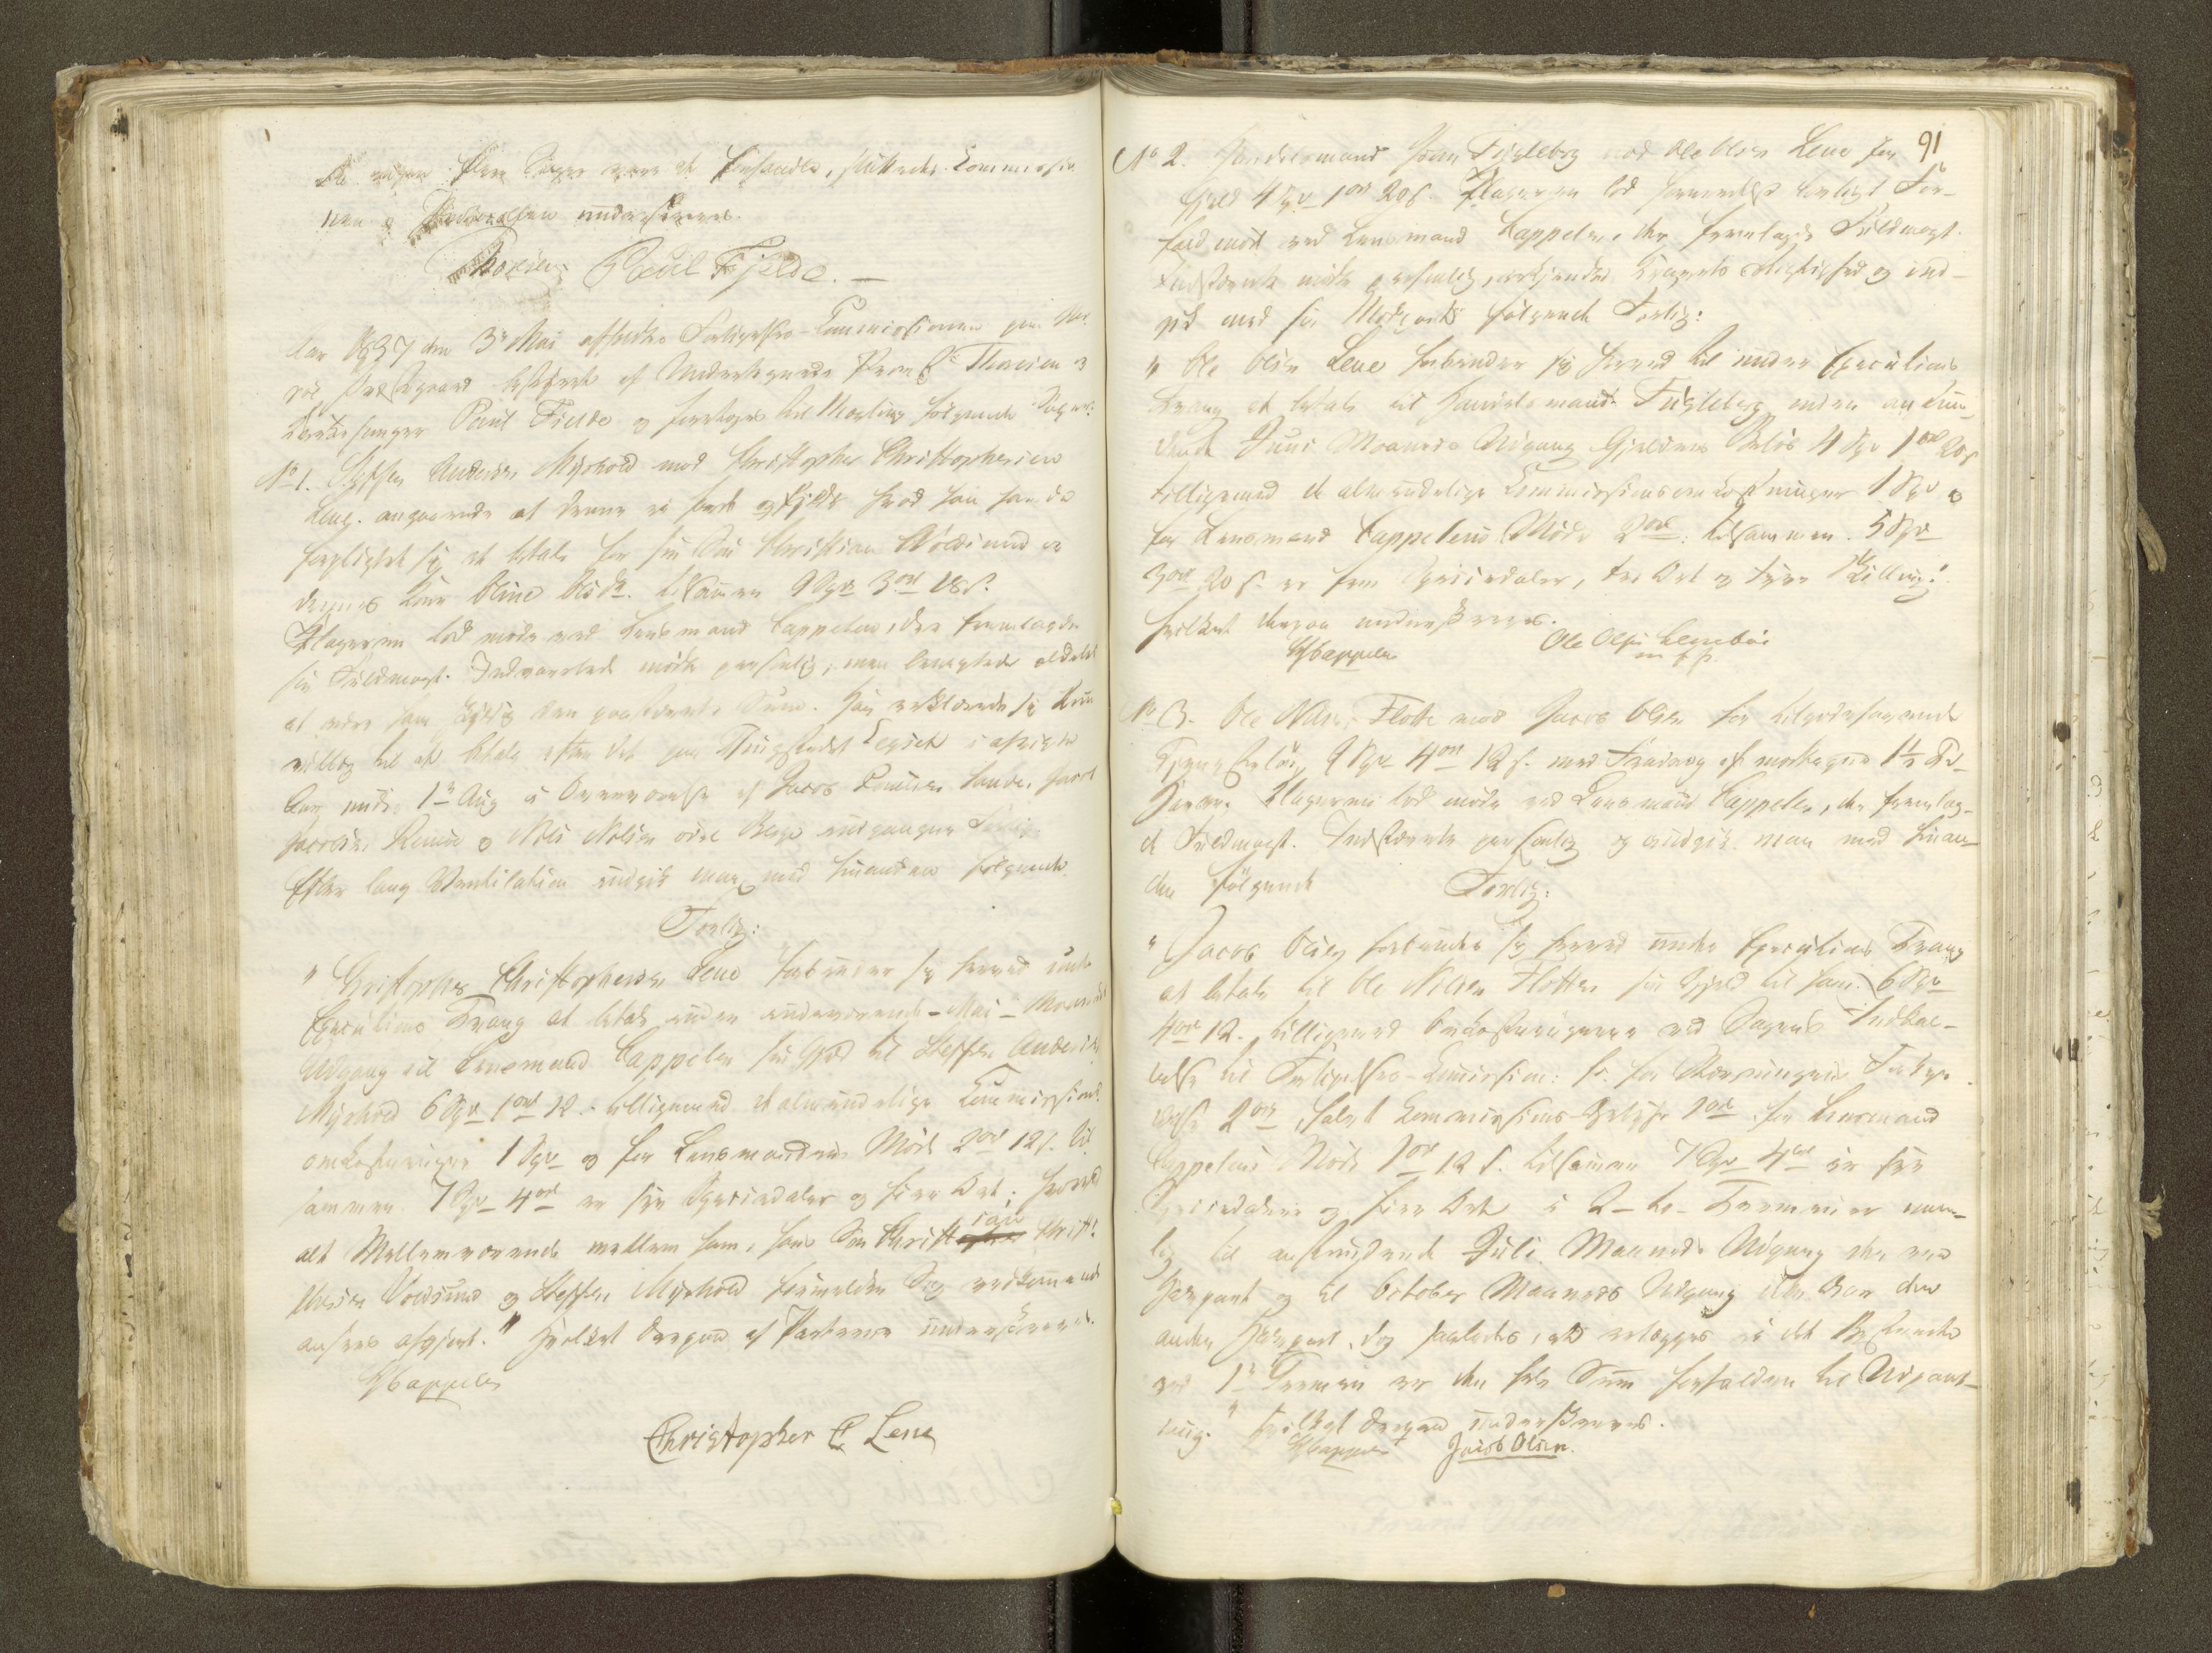 Da ingen flere Sager vare at behandle, sluttedes Commissio-
nen og Protocollen underskreves.
Thorsen Poul Fjelde. —
Aar 1837 den 3de Mai afholdtes Forligelses-Commissionen paa
Præstegaard bestyret af Undertegnede Thorsen og
Kirkesanger Poul Fjelde og foretoges til Mægling følgende Sager:
No 1. Steffen Andersen Myrhold mod Christopher Christophersen
Lene. angaaende at denne ei havde opfyldt hvad han havde
forpligtet sig at betale for sin Søn Christian Voldsund
Oline Olsdtr. tilsammen 9 Spd 3 ort 18 s.
Klageren lod møde ved Lensmand Cappelen, der fremlagde
sin Fuldmagt. Indvarslede mødte personlig, men benegtede aldeles
at være ham skyldig den paastævnte Sum. Han erklærede sig kun
villig til at betale efter det paa Thingstedet
1ste Aug i Overværelse af Jacob Hande, Jacob
Jacobsen og Niels Nilsen øvre Berge indgangne Forlig.
Efter lang Ventilation indgik man med hinanden følgende
Forlig:
" Christopher Christophersen Lene forbinder sig herved under
Executions Tvang at betale inden indeværende Mai Maaneds
Udgang til Lensmand Cappelen sin Gjeld til Steffen Andersen
Myrhold 6 Spd 1 ort 12. tilligemed de almindelige Commissions-
omkostninger 1 Spd og for Lensmandens Møde 2 ort 12 s. til-
sammen 7 Spd 4 ort er syv Speciedaler og fire Ort; hvorved
alt Mellemværende mellem ham, hans Søn Christian Christ-
Voldsund og Steffen Myrhold Sag vedkommende
ansees afgjort." Hvilket derpaa af Parterne underskreves.
Cappelen
Christopher C Lene
91
No 2. Handelsmand Fugleberg mod Ole Olsen Lene for
Gjeld 4 Spd 1 ort 20 s. Klageren lod formedelst lovligt For-
fald møde ved Lensmand Cappelen, der fremlagde Fuldmagt.
Indstævnte mødte personlig, erkjendte Kravets Rigtighed og ind-
gik med sin Modpart følgende Forlig:
" Ole Olsen Lene forbinder sig herved til under Executions
Tvang at betale til Handelsmand Fugleberg inden anstun-
dende Juni Maaneds Udgang Gjelden Beløb 4 Spd 1 ort 20 s
tilligemed de almindelige Commissionsomkostninger 1 Spd og
for Lensmand Cappelens Møde 2 ort: tilsammen. 5 Spd
3 ort 20 s. er fem Speciedaler, tre Ort og tyve Skilling."
Hvilket derpaa underskreves.
Cappelen Ole Olsen Lenebøe
m. f. P.
No 3. Ole Nilsen Flotte mod Jacob Olsen for tilgodehavende
Tjenesteløn 9 Spd 4 ort 12 s. med Fradrag af modtagne 1½ Td
Havre. Klageren lod møde ved Lensmand Cappelen, der fremlag-
de Fuldmagt. Indstævnte personlig og indgik man med hinan-
den følgende Forlig:
" Jacob Olsen forbinder sig herved under Executions Tvang
at betale til Ole Nilsen Flotten sin Gjeld til ham 6 Spd
4 ort 12. tilligemed Omkostningerne ved Sagens Indkal-
delse til Forligelses-Commission: for
2 ort, halvt Commissions-Gebyhr 1 ort for Lensmand
Cappelens Møde 1 ort 12 s. tilsammen 7 Spd 4 ort er syv
Speciedaler og fire Ort i 2-to-Terminer nem-
lig til anstundende Juli Maaneds Udgang den ene
Halvpart og til October Maaneds Udgang den
anden Halvpart, dog saaledes, at erlægges ei det Bestemte
ved 1ste Termin er den hele Sum forfalden til Udpant-
ning." Hvilket derpaa underskreves.
Cappelen Jacob Olsen.